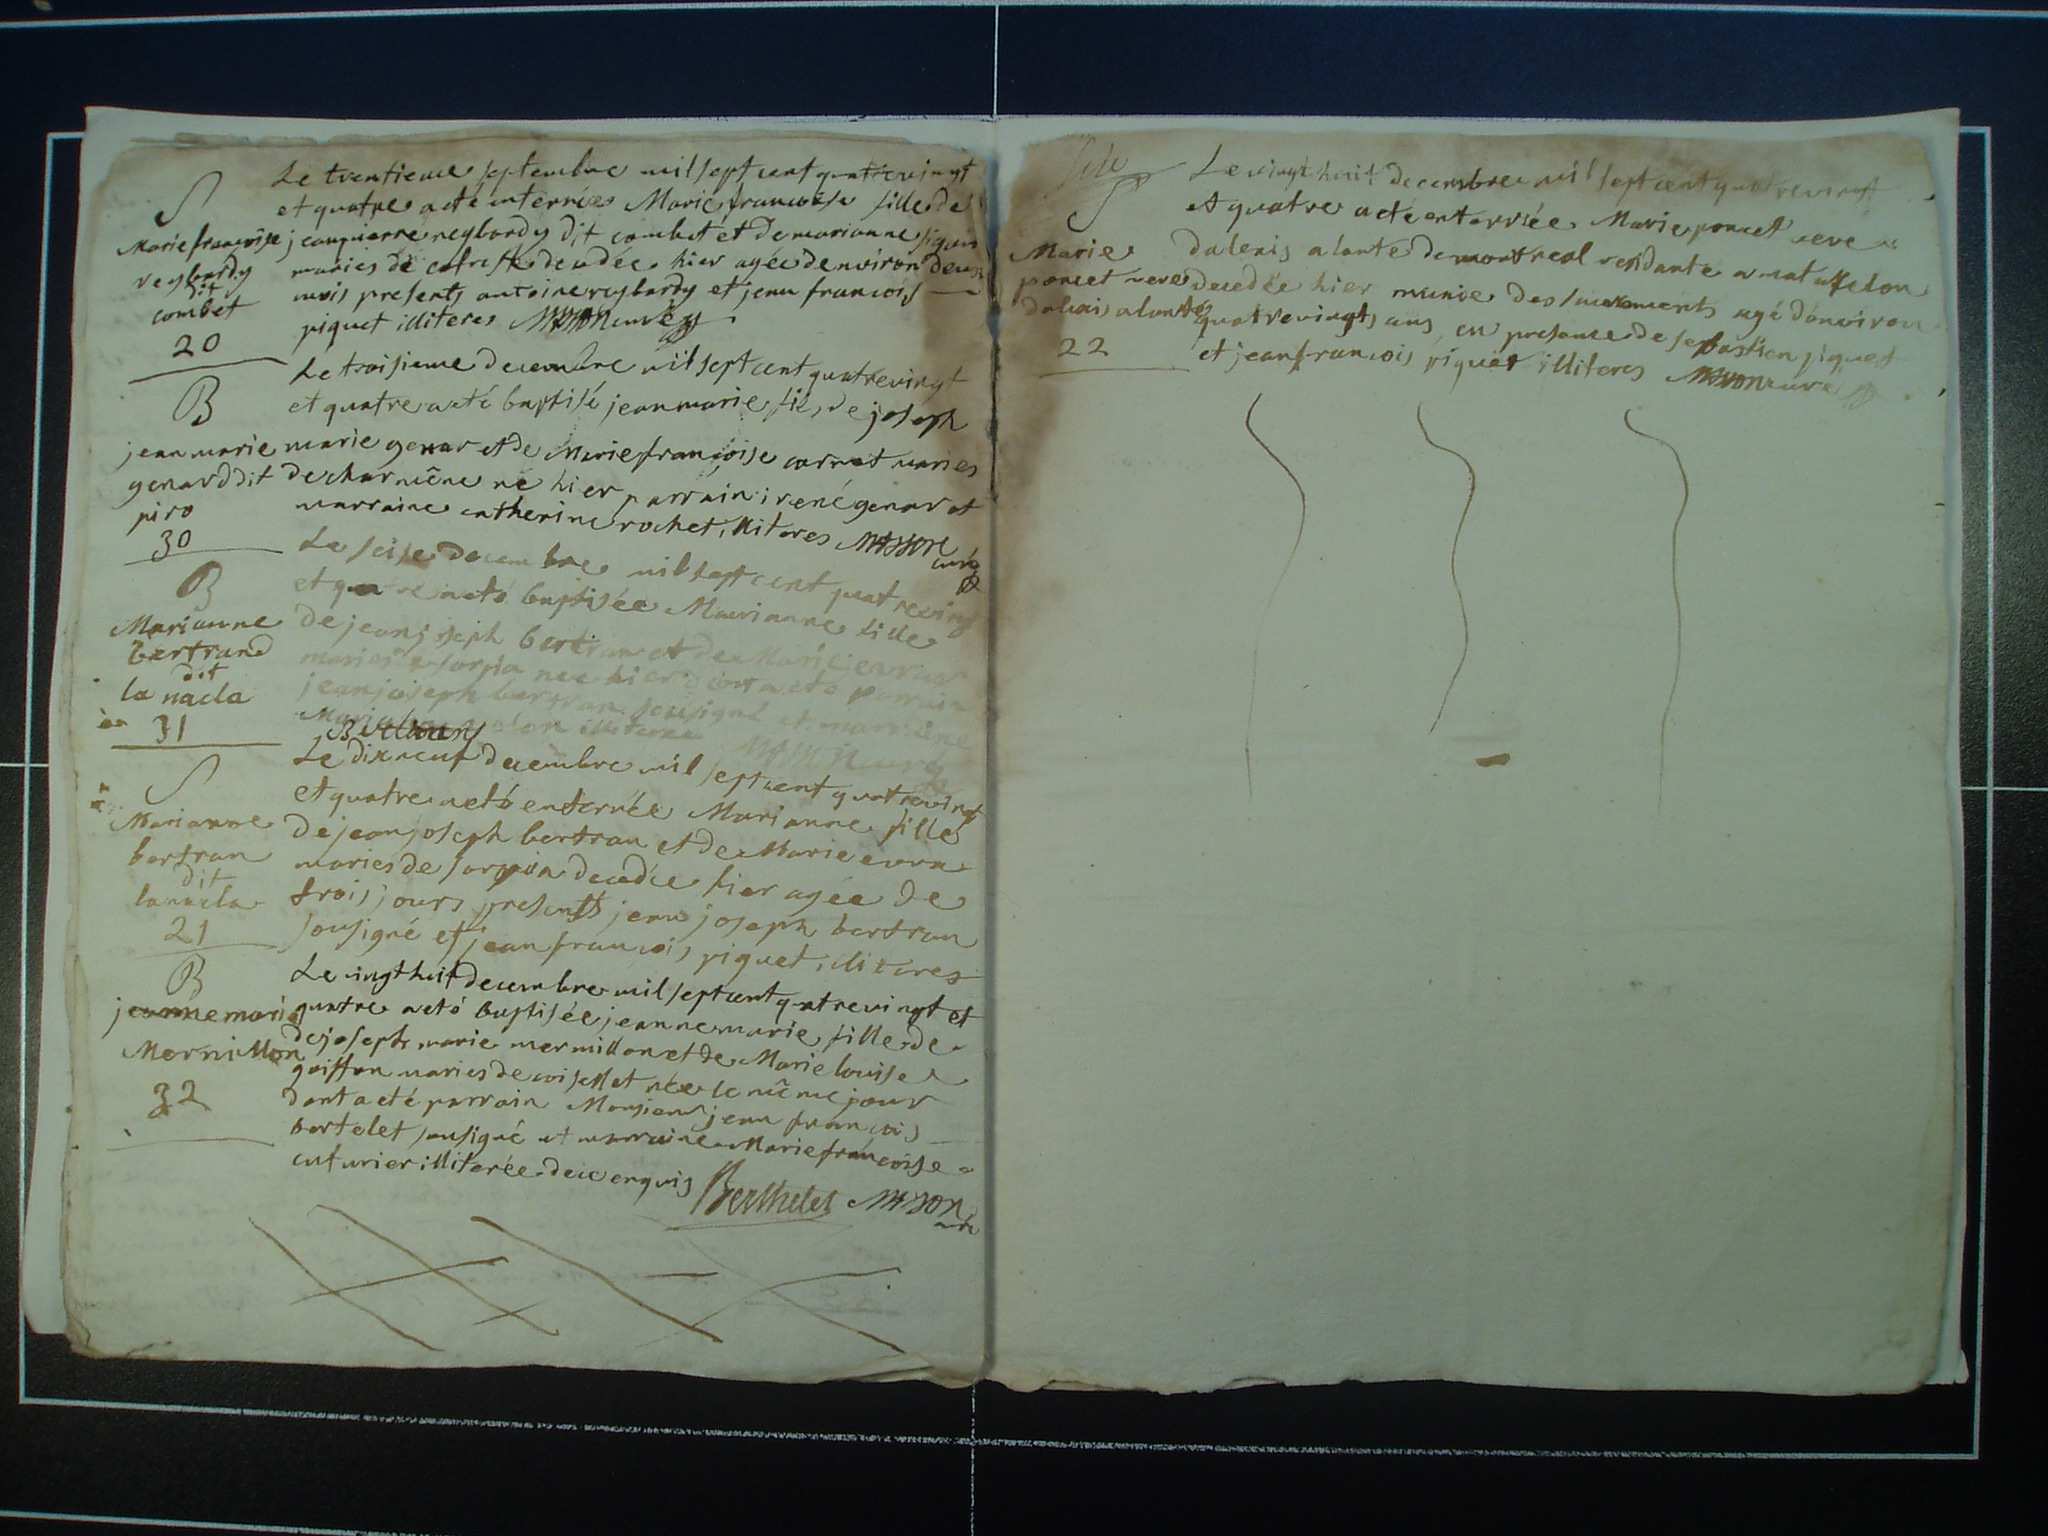 S
Marie françoise
reybardy
dit
combet
20
Le trentieme septembre mil sept cent quatrevingt
et quatre a eté enterrée Marie françoise fille de
jeanpierre reybardy dit combet et de marianne
maries de decedée hier agée denviron deux
mois presents antoine reybardy et jean francois
piquet illiteres MASSON curé
B
jean marie
genard dit
piro
30
Le troisieme decembre mil sept cent quatrevingt
et quatre a eté baptisé jeanmarie fils de joseph
marie genar et de Marie françoise carnet maries
de charmêne né hier parrain irené genar et
marraine catherine rochet illiteres MASSON
curé
B
Marianne
bertrand
dit
la nacla
31
Le seise decembre mil sept cent quatrevingt
et quatre a eté baptisée Marianne fille
de jeanjoseph bertran et de Marie
maries née hier dont a eté parrain
jeanjoseph bertran sousigné et marraine
illiteree
S
Marianne
bertran
dit
lanacla
21
Le dixneuf decembre mil sept cent quatrevingt
et quatre a eté enterrée Marianne fille
de jeanjoseph bertran et de Marie
maries de decedée hier agée de
trois jours presents jean joseph bertran
sousigné et jean francois piquet illiteres
B
jeanne marie
Mermillon
32
Le vingthuit decembre mil sept cent quatrevingt et
quatre a eté baptisée jeanne marie fille de
de joseph marie mermillon et de Marie louise
goiffon maries de coiselet née le même jour
dont a eté parrain Monsieur jean francois
bertelet sousigné et marraine Marie françoise
cuturier illiterée de ce enquis Berthelet MASSON
curé
S
Marie
poncet veve
dalexis alante
22
Le vingt huit decembre mil sept cent quatrevingt
et quatre a eté enterrée Marie poncet veve
dalexis alante de montreal residante a mataffelon
decedée hier munie des sacrements agé denviron
quatrevingts ans en presance de sebastien piquet
et jean francois piquet illiteres MASSON curé